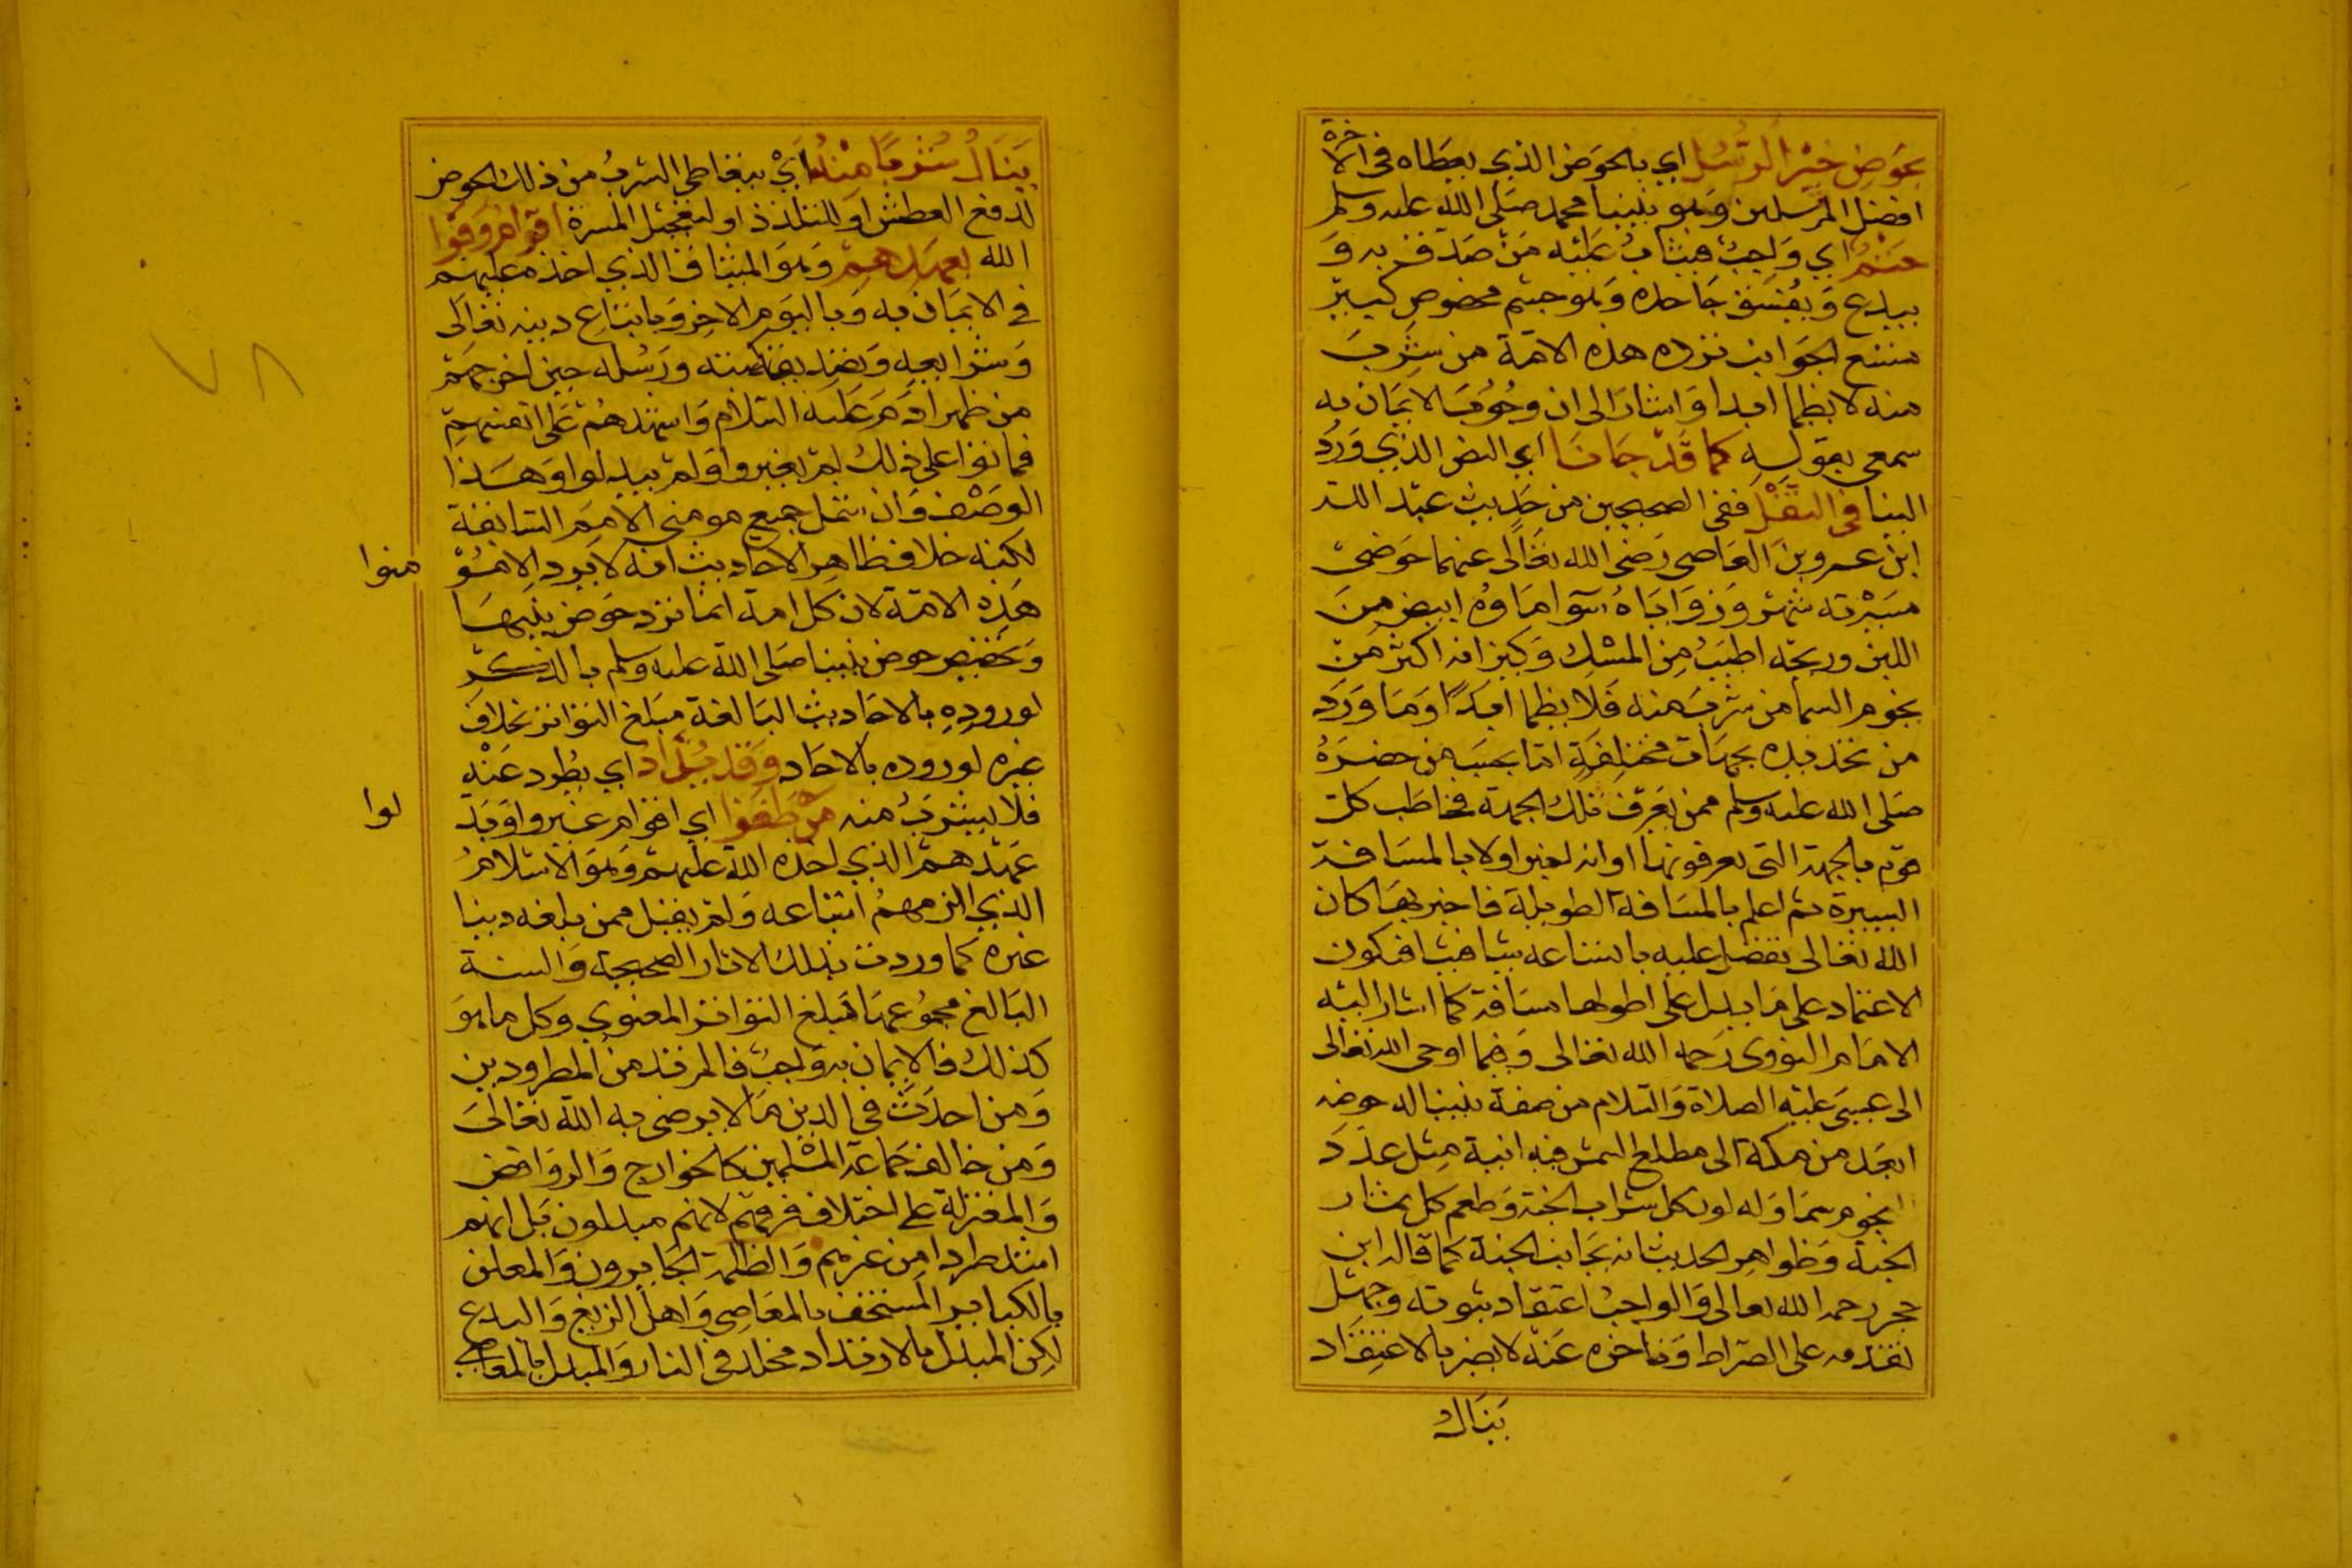 بحوض خير الرسل اي بالحوض الذي يعطاه في الآخرة
افضل المرسلين وهو نبينا محمد صلى الله عليه وسلم
حتم اي واجب فيثاب عليه من صدق به و
يبدع ويفسق جاحده وهو جسم مخصوص كبير
متسع الجوانب ترده هذه الامة من شرب
منه لا يظما ابدا واشار الى ان وجوب الايمان به
سمعي بقوله كما قد جانا اي النص الذي ورد
الينا في النقل ففي الصحيحين من حديث عبد الله
ابن عمرو بن العاصي رضي الله تعالى عنهما حوضي
مسيرته شهر وزواياه سوا ماوه ابيض من
اللبن وريحه اطيب من المسك وكيزانه اكثر من
نجوم السما من شرب منه فلا يظما ابدا وما ورد
من تحديده بجهات مختلفة اما بحسب من حضره
صلى الله عليه وسلم ممن يعرف تلك الجهة فخاطب كل
قوم بالجهة التي يعرفونها او انه اخبر اولا بالمسافة
اليسيرة ثم اعلم بالمسافة الطويلة فاخبر بها كان
الله تعالى تفضل عليه باتساعه شيا فشيا فيكون
الاعتماد على ما يدل على اطولها مسافة كما اشار اليه
الامام النووي رحمه الله تعالى وفيما اوحى الله تعالى
الى عيسى عليه الصلاة والسلام من صفة نبينا له حوض
ابعد من مكة الى مطلع الشمس فيه انية مثل عدد
نجوم سما وله لون كل شراب الجنة وطعم كل ثمار
الجنة وظواهر الحديث انه بجانب الجنة كما قاله ابن
حجر رحمه الله تعالى والواجب اعتقاد ثبوته وجهل
تقدمه على الصراط وتاخره عنه لا يضر بالاعتقاد
ينال
ينال شربا منه اي يتعاطى الشرب من ذلك الحوض
لدفع العطش او للتلذذ او لتعجيل المسرة اقوام وفوا
الله بعهدهم وهو الميثاق الذي اخذه عليهم
في الايمان به وباليوم الاخر وباتباع دينه تعالى
وشرايعه وبتصديق كتبه ورسله حين اخرجهم
من ظهر ادم عليه السلام واشهدهم على انفسهم
فماتوا على ذلك لم يغيروا ولم يبدلوا وهذا
الوصف وان شمل جميع مومني الامم السابقة
لكنه خلاف ظاهر الاحاديث انه لا يرده الا مؤ
منوا
هذه الامة لان كل امة انما ترد حوض نبيها
وتخصيص حوض نبينا صلى الله عليه وسلم بالذكر
لوروده بالاحاديث البالغة مبلغ التواتر بخلاف
غيره لوروده بالاحاد وقل يذاد اي يطرد عنه
فلا يشرب منه من طغوا اي اقوام غيروا وبد
لوا
عهدهم الذي اخذه الله عليهم وهو الاسلام
الذي الزمهم اتباعه ولم يقبل ممن بلغه دينا
غيره كما وردت بذلك الاثار الصحيحة والسنة
البالغ مجموعها مبلغ التواتر المعنوي وكل ما هو
كذلك فالايمان به واجب فالمرتد من المطرودين
ومن احدث في الدين ما لا يرضى به الله تعالى
ومن خالف جماعة المسلمين كالخوارج والروافض
والمعتزلة على اختلاف فرقهم لانهم مبدلون بل انهم
اشد طردا من غيرهم والظلمة الجايرون والمعلن
بالكباير المستخف بالمعاصي واهل الزيغ والبدع
لكن المبدل بالارتداد مخلد في النار والمبدل بالمعاصي
٧٨